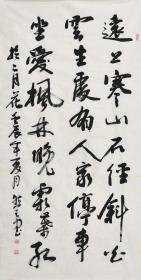 遠上寒山石径斜白
雲生處有人家停車
坐愛楓林晚霜葉紅
於二月花 壬辰年夏月 書